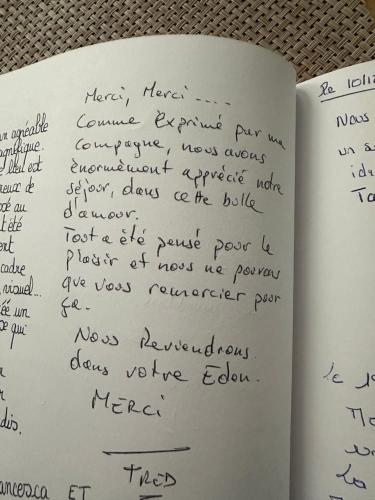 Merci, Merci ....
Comme Exprimé par ma
Compagne, nous avons
énormément apprécié notre
séjour, dans cette bulle
d'amour.
Tout a été pensé pour le
plaisir et nous ne pouvons
que vous remercier pour
ça.
Nous Reviendrons
dans votre Eden.
MERCI
TRED
un agréable
magnifique.
est
de
au
été
cadre
visuel...
un
ce qui
dis.
ancesca ET
Le 10/1
Nous
un s
Ta
Le 1